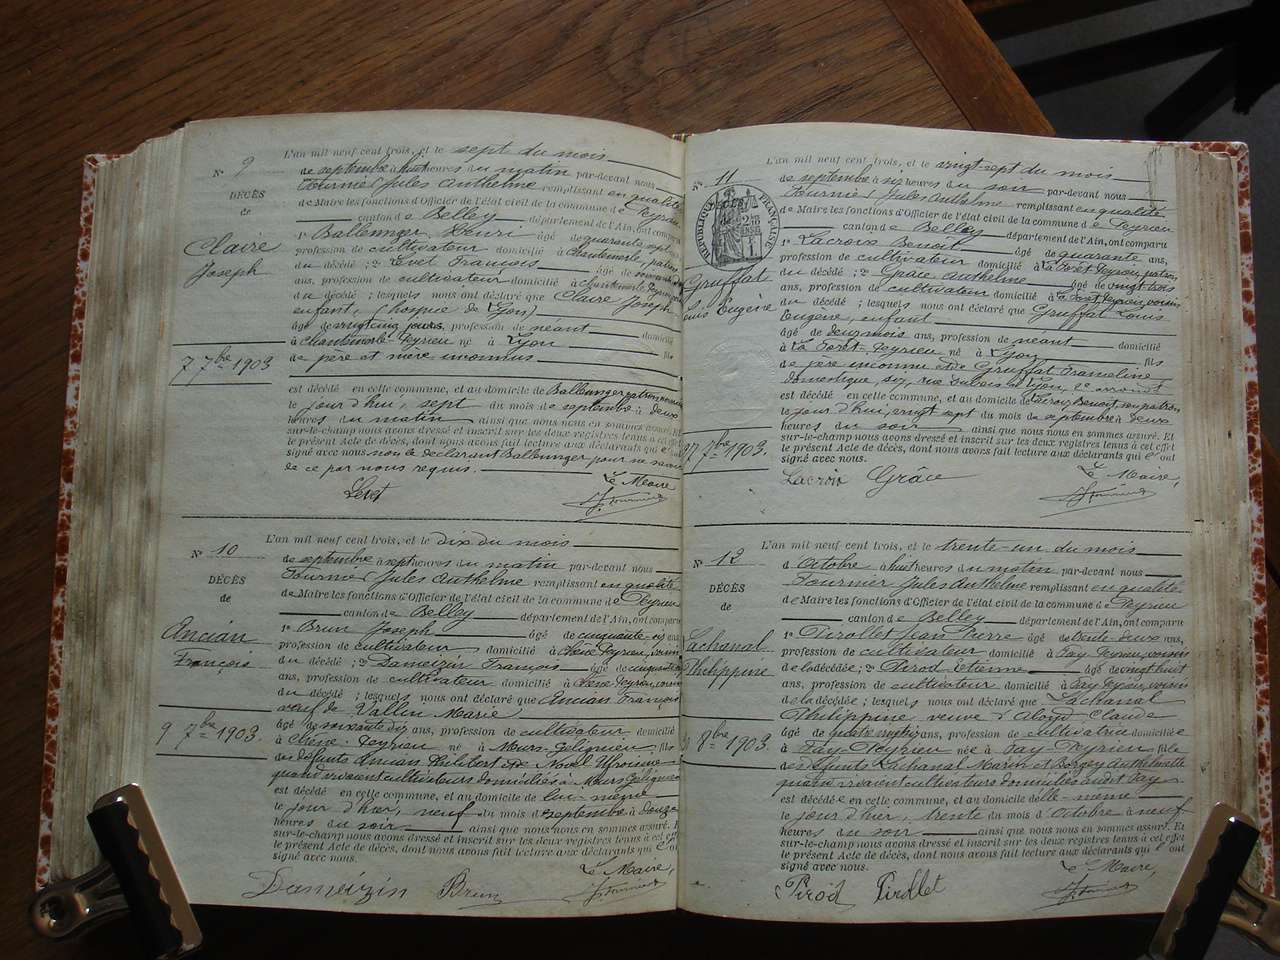 N° 9
DÉCÈS
de
Claire
Joseph
7 7bre 1903
L'an mil neuf cent trois, et le sept du mois
de septembre à huit heures du matin par-devant nous
Fournier Jules Anthelme remplissant en qualité
de Maire les fonctions d'Officier de l'état civil de la commune de Peyrieu
canton de Belley département de l'Ain, ont comparu
1° Balleunger Henri âgé de quarante sept
profession de cultivateur domicilié à Chantemerle, patron
du décédé ; 2° Levet François âgé de
ans, profession de cultivateur domicilié à Chantemerle Peyrieu
du décédé ; lesquels nous ont déclaré que Claire Joseph
enfant, (hospice de Lyon)
âgé de vingt cinq jours, profession de néant domicilié
à Chantemerle Peyrieu né à Lyon fils
de père et mère inconnus
est décédé en cette commune, et au domicile de Balleunger patron
le jour d'hui, sept du mois de septembre à deux
heures du matin ainsi que nous nous en sommes assuré. Et
sur-le-champ nous avons dressé et inscrit sur les deux registres tenus à cet effet
le présent Acte de décès, dont nous avons fait lecture aux déclarants qui ont
signé avec nous non le déclarant Balleunger pour ne savoir
de ce par nous requis.
Le Maire
Levet
J. Fournier
N° 10
DÉCÈS
de
Ancian
François
9 7bre 1903
L'an mil neuf cent trois, et le dix du mois
de septembre à sept heures du matin par-devant nous
Fournier Jules Anthelme remplissant en qualité
de Maire les fonctions d'Officier de l'état civil de la commune de Peyrieu
canton de Belley département de l'Ain, ont comparu
1° Brun Joseph âgé de cinquante six ans,
profession de cultivateur domicilié à Chêne Peyrieu, voisin
du décédé ; 2° Dameizin François âgé de cinquante
ans, profession de cultivateur domicilié à Chêne Peyrieu, voisin
du décédé ; lesquels nous ont déclaré que Ancian François
veuf de Vallin Marie
âgé de soixante dix ans, profession de cultivateur, domicilié
à Chêne-Peyrieu né à Meurs-Gélignieu, fils
des défunts Ancian Philibert et de Novel
quand vivaient cultivateurs domiciliés à Meurs Gélignieu
est décédé en cette commune, et au domicile de lui-même
le jour d'hier, neuf du mois de septembre à douze
heures du soir ainsi que nous nous en sommes assuré. Et
sur-le-champ nous avons dressé et inscrit sur les deux registres tenus à cet effet
le présent Acte de décès, dont nous avons fait lecture aux déclarants qui ont
signé avec nous.
Le Maire,
Dameizin Brun
J. Fournier
N° 11
RÉPUBLIQUE FRANÇAISE
Gruffat
Louis Eugène
27 7bre 1903.
L'an mil neuf cent trois, et le vingt sept du mois
de septembre à six heures du soir par-devant nous
Fournier Jules Anthelme remplissant en qualité
de Maire les fonctions d'Officier de l'état civil de la commune de Peyrieu
canton de Belley département de l'Ain, ont comparu
1° Lacroix Benoit âgé de quarante ans,
profession de cultivateur domicilié à La Forêt, Peyrieu, patron
du décédé ; 2° Grâce Anthelme âgé de vingt trois
ans, profession de cultivateur domicilié à la Forêt, Peyrieu, voisin
du décédé ; lesquels nous ont déclaré que Gruffat Louis
Eugène, enfant
âgé de deux mois ans, profession de néant domicilié
à La Forêt, Peyrieu né à Lyon fils
de père inconnu et de Gruffat Franceline
domestique, 207, rue Dubois de Lyon, 2e arrondt
est décédé en cette commune, et au domicile de Lacroix Benoit, son patron
le jour d'hui, vingt sept du mois de septembre à deux
heures du soir ainsi que nous nous en sommes assuré. Et
sur-le-champ nous avons dressé et inscrit sur les deux registres tenus à cet effet
le présent Acte de décès, dont nous avons fait lecture aux déclarants qui ont
signé avec nous.
Le Maire,
Lacroix Grâce
J. Fournier
N° 12
DÉCÈS
de
Lachanal
Philippine
30 8bre 1903
L'an mil neuf cent trois, et le trente-un du mois
d'Octobre à huit heures du matin par-devant nous
Fournier Jules Anthelme remplissant en qualité
de Maire les fonctions d'Officier de l'état civil de la commune de Peyrieu
canton de Belley département de l'Ain, ont comparu
1° Pirollet Jean Pierre âgé de trente-deux ans,
profession de cultivateur domicilié à Fay, Peyrieu, voisin
de la décédée ; 2° Pérod Etienne âgé de vingt huit
ans, profession de cultivateur domicilié à Fay, Peyrieu, voisin
de la décédée ; lesquels nous ont déclaré que Lachanal
Philippine veuve d'Aloyd Claude
âgée de quatre vingts ans, profession de cultivatrice domiciliée
à Fay-Peyrieu née à Fay-Peyrieu fille
des défunts Lachanal Marin et Borgey Anthelmette
quand vivaient cultivateurs domiciliés audit Fay
est décédée en cette commune, et au domicile d'elle-même
le jour d'hier, trente du mois d'Octobre à neuf
heures du soir ainsi que nous nous en sommes assuré. Et
sur-le-champ nous avons dressé et inscrit sur les deux registres tenus à cet effet
le présent Acte de décès, dont nous avons fait lecture aux déclarants qui ont
signé avec nous.
Le Maire,
Pérod Pirollet
J. Fournier